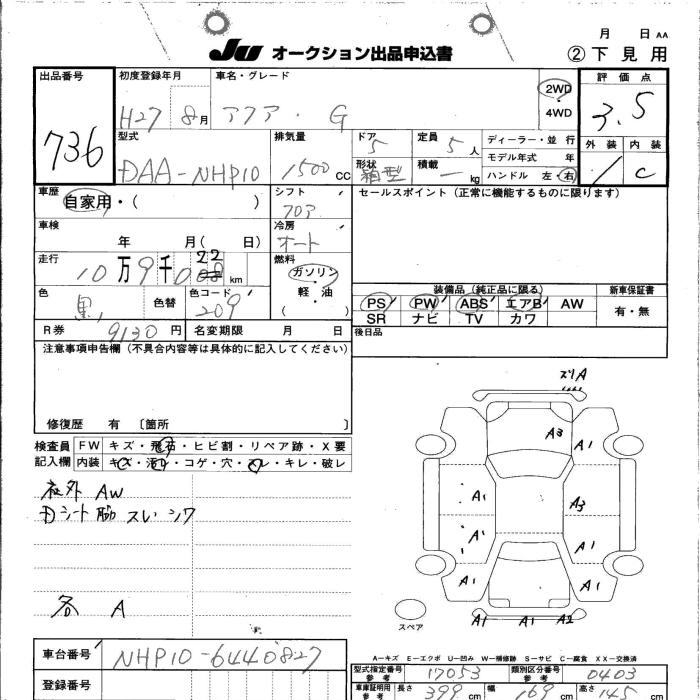 月 日 AA
JU オークション出品申込書 ②下見用
出品番号 初度登録年月 車名・グレード 2WD・4WD 評価点
736 H27 8月 アクア・G 3.5
型式 排気量 ドア 定員 ディーラー・並行 外装 内装
DAA-NHP10 1500CC 5 5人 モデル年式 年 C
形状 積載 ハンドル 左・右
箱型 kg
車歴 自家用・( ) シフト セールスポイント(正常に機能するものに限ります)
フロア
車検 年 月( 日) 冷房
オート
走行 10万9千022km 燃料
ガソリン・軽・油
( )
色 黒 色替 色コード 209
装備品(純正品に限る) 新車保証書
PS PW ABS エアB AW 有・無
SR ナビ TV カワ
R券 9130円 名変期限 月 日 後日品
注意事項申告欄(不具合内容等は具体的に記入してください)
修復歴 有 〔箇所 〕
検査員記入欄 FW キズ・飛石・ヒビ割・リペア跡・X要
内装 キズ・汚レ・コゲ・穴・スレ・キレ・破レ
社外 AW
Dシート脇 スレ シワ
各 A
スリA
A3 A1
A1 A3
A1 A1
A1 A1
A1 A1 A2
スペア
A-キズ E-エクボ U-凹み W-補修跡 S-サビ C-腐食 XX-交換済
車台番号 NHP10-6440827
型式指定番号 参考 17053 類別区分番号 参考 0403
登録番号
車庫証明用 参考 長さ 399cm 幅 169cm 高さ 145cm